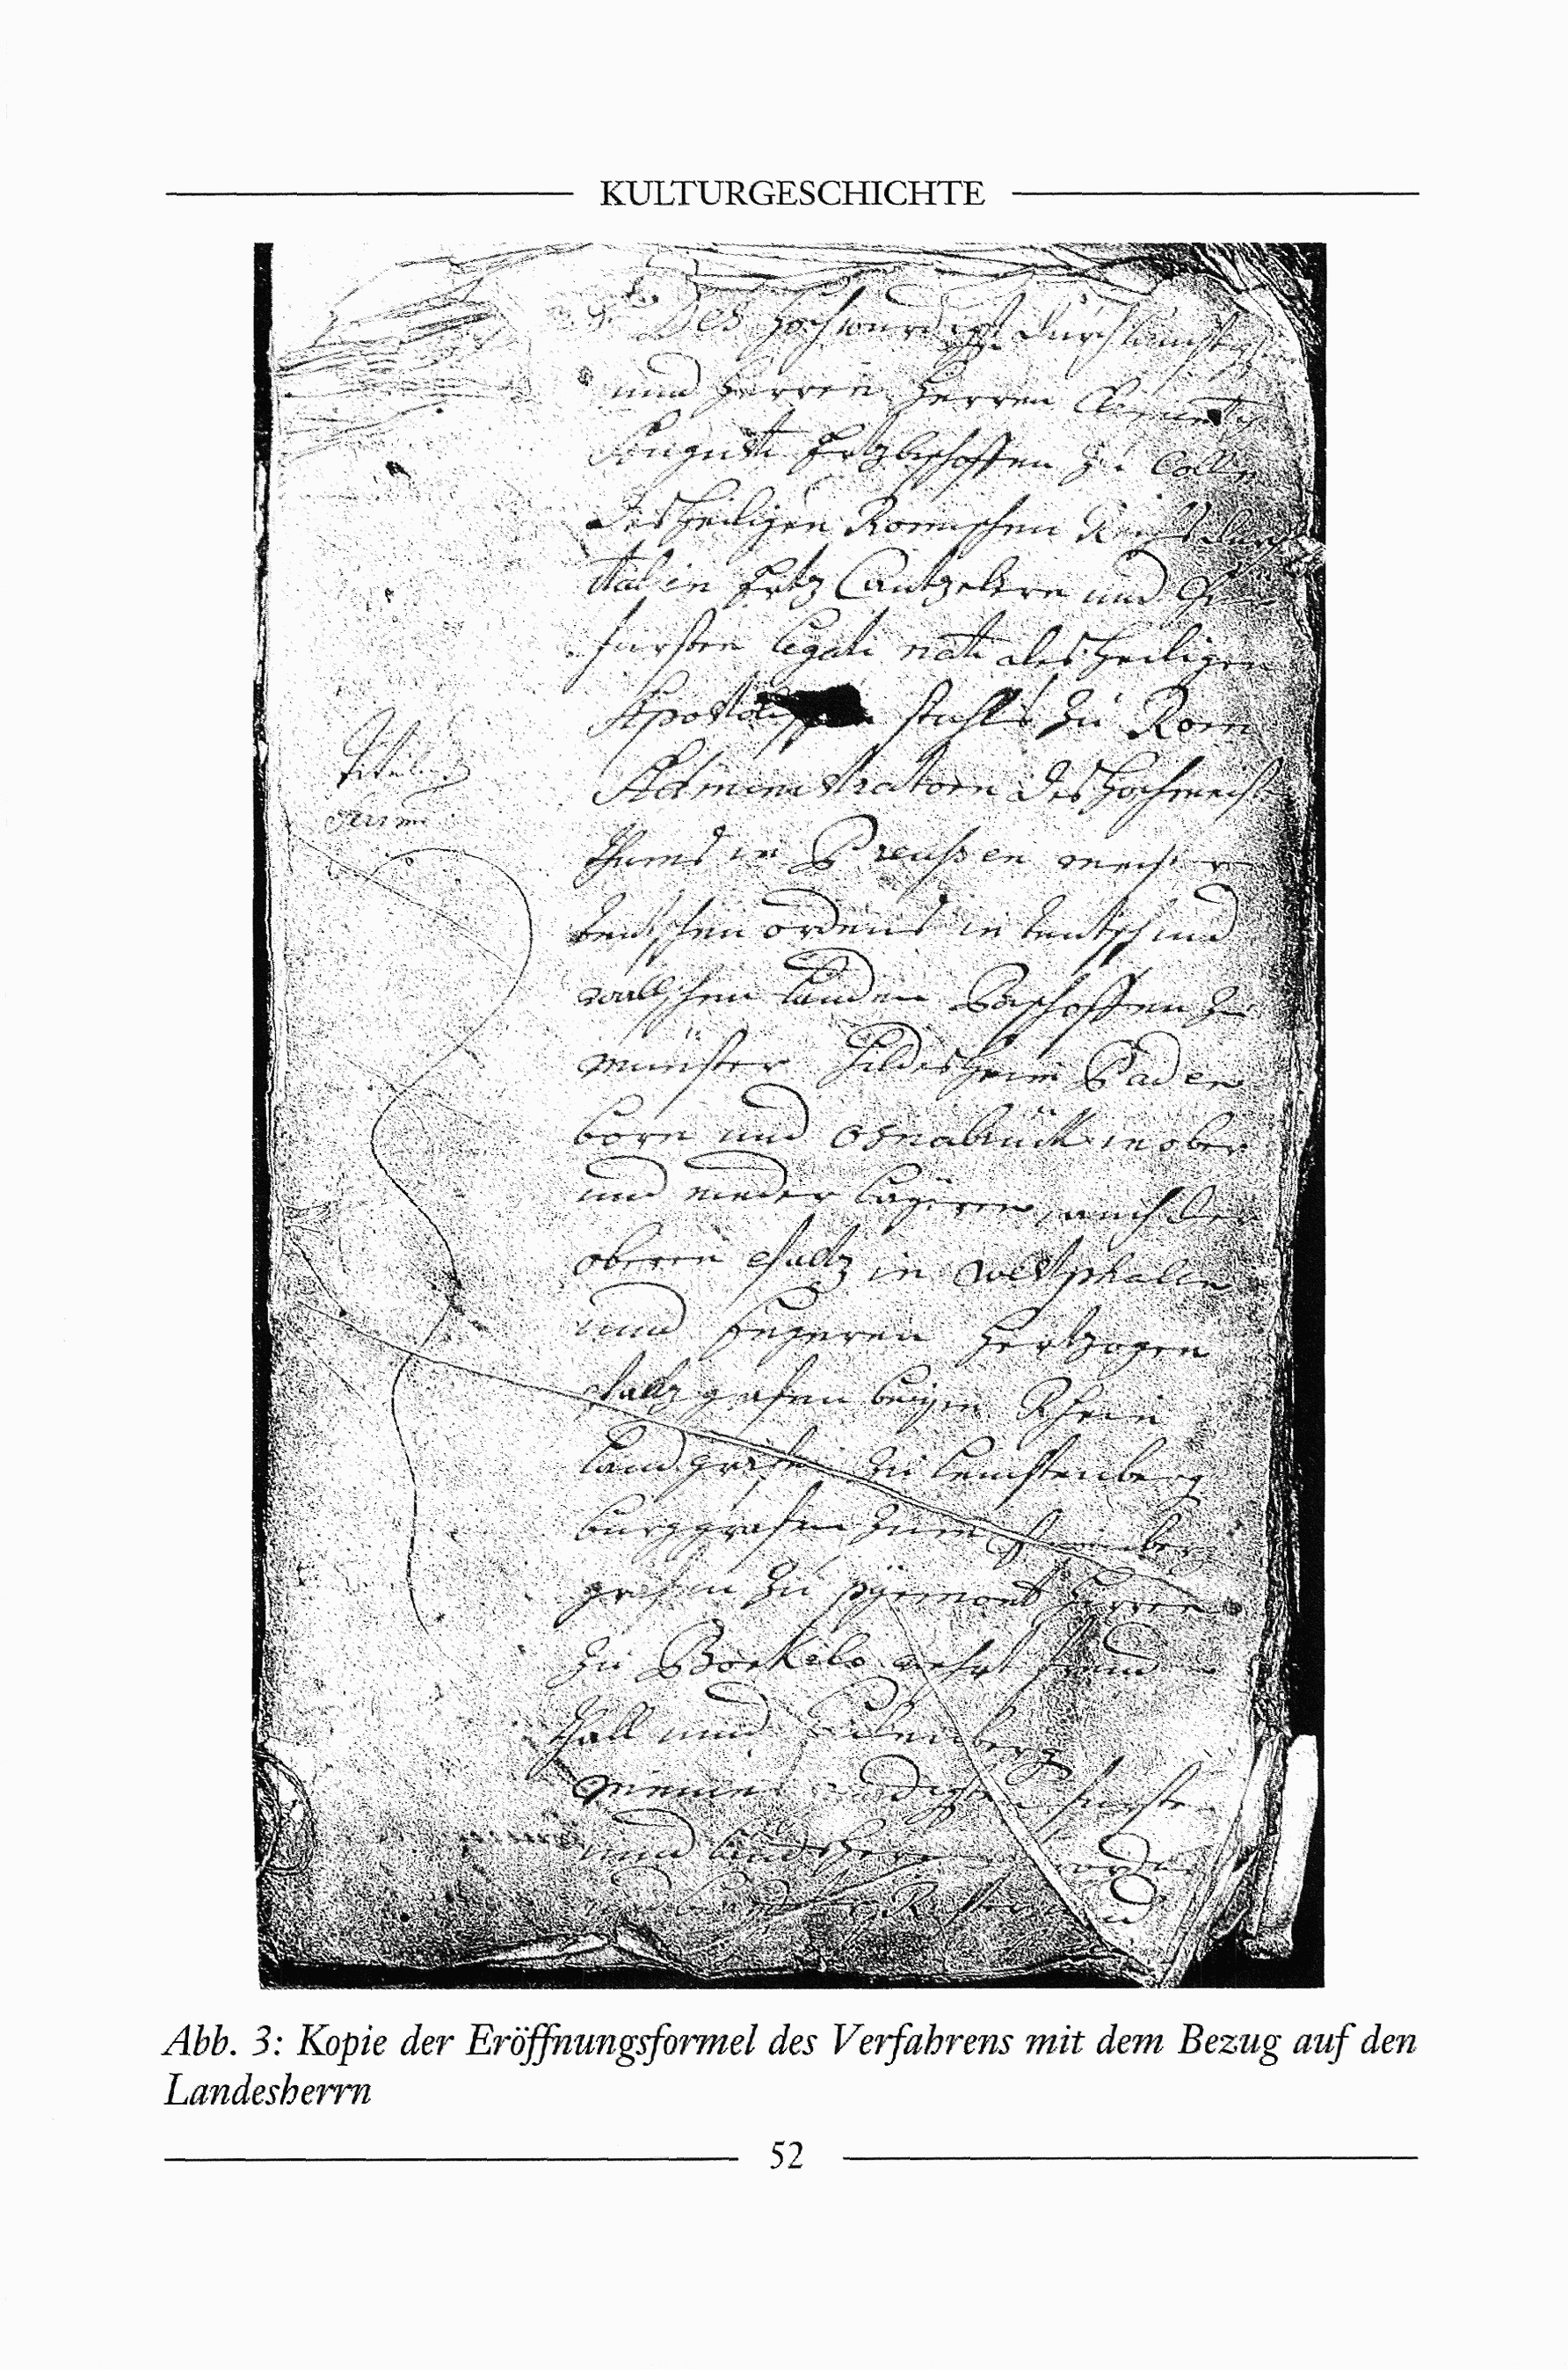 KULTURGESCHICHTE
Des hochwurdigst durchlauchtigsten
und herren herren Clementz
Augusti Ertzbischoffen zu Colln
des heiligen Romischen Reichs durch
Italien Ertz Cantzelern und
fursten legati nati des heiligen
Apostolischen stuhls zu Rom
Titulus
Administratorn des hochmeister
thumbs in Preußen meistern
teutschen ordens in teutsch und
wallschen landen Bischoffen zu
münster hildesheim Paden
born und osnabrück in ober
und nieder bayeren, auch der
oberen Pfaltz in westphalen
und Engeren hertzogen
Pfaltzgrafen beym Rhein
landgrafen zu leuchtenberg
burggrafen zum stromberg
grafen zu pyrmont herren
zu Borkelo wehrt freuden
thall und Eulenberg
meines gnädigsten fursten
und landtsherren
und
Abb. 3: Kopie der Eröffnungsformel des Verfahrens mit dem Bezug auf den
Landesherrn
52